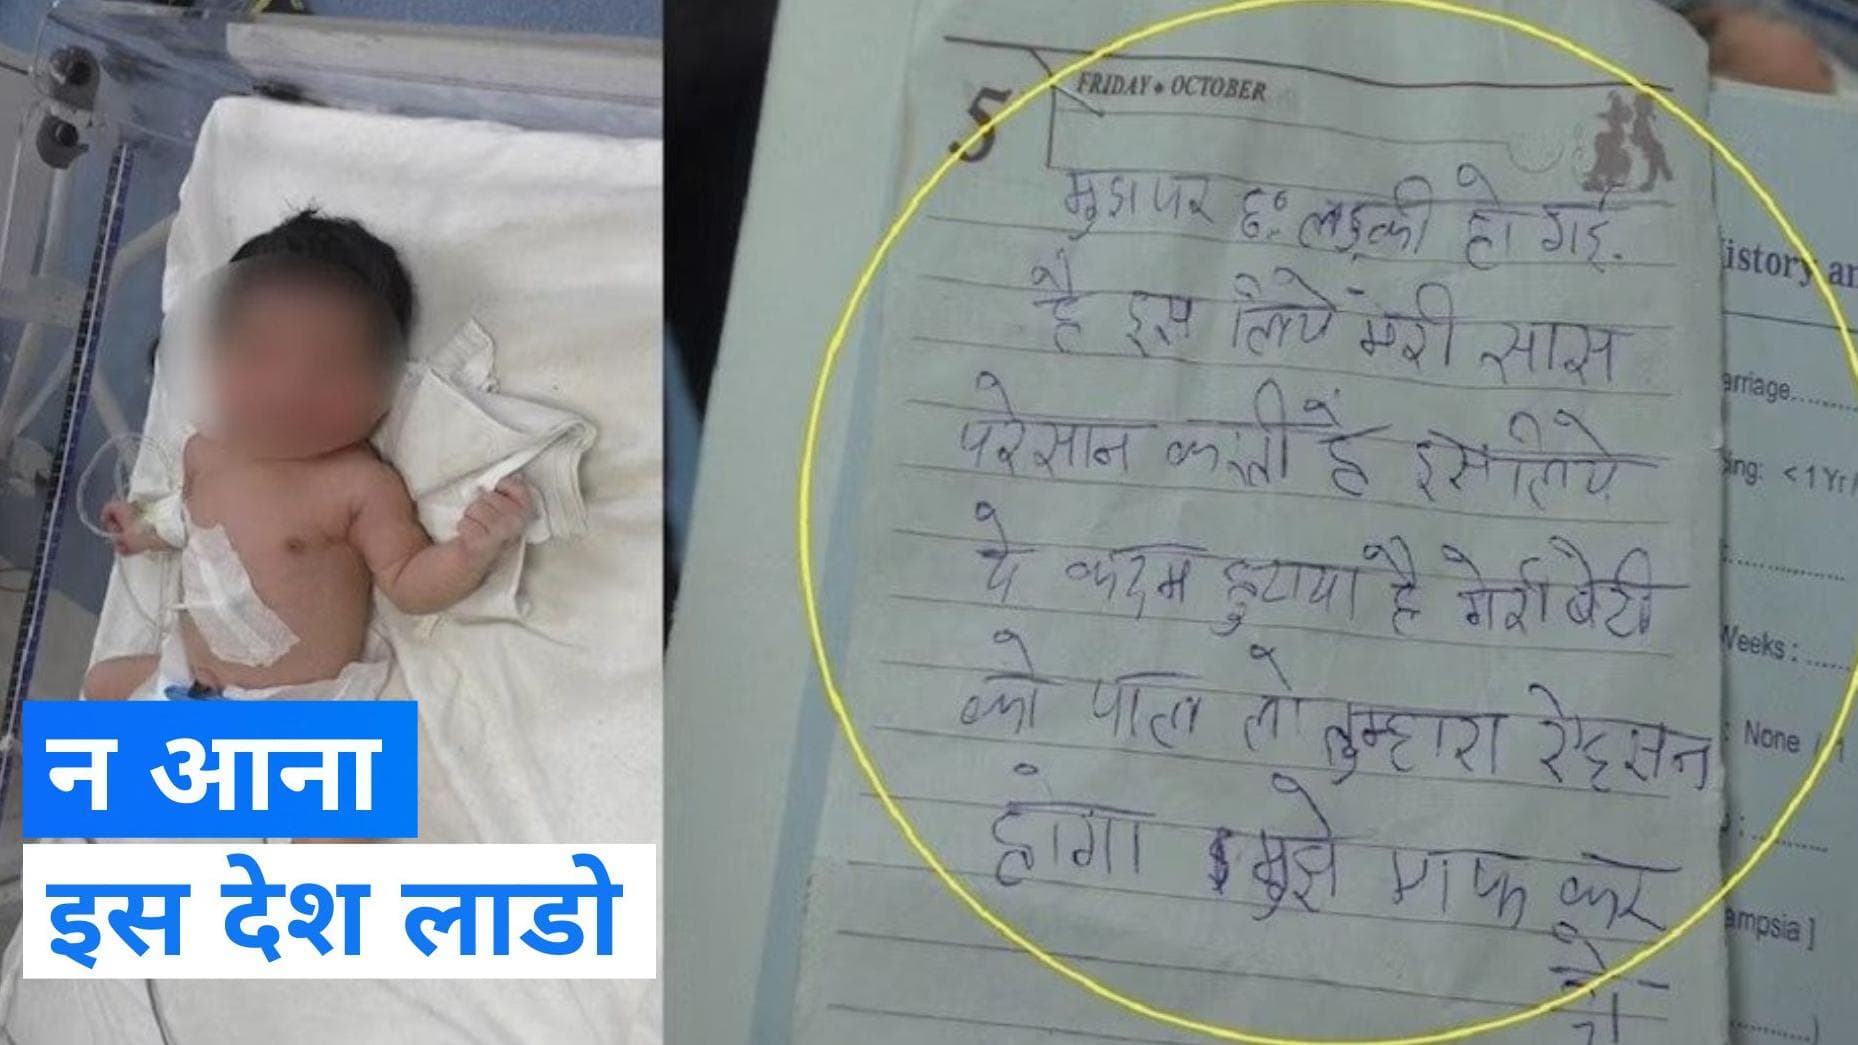 न आना
इस देश लाडो
5
FRIDAY • OCTOBER
मुझ पर छः लड़की हो गई.
है इस लिये मेरी सास
परेसान करती है इस लिये
ये कदम हुटाया है मेरी बेटी
को पाल लो तुम्हारा
होगा मुझे माफ कर
दो
istory an
arriage
ing: < 1 Yr /
Weeks :
: None / 1
ampsia ]